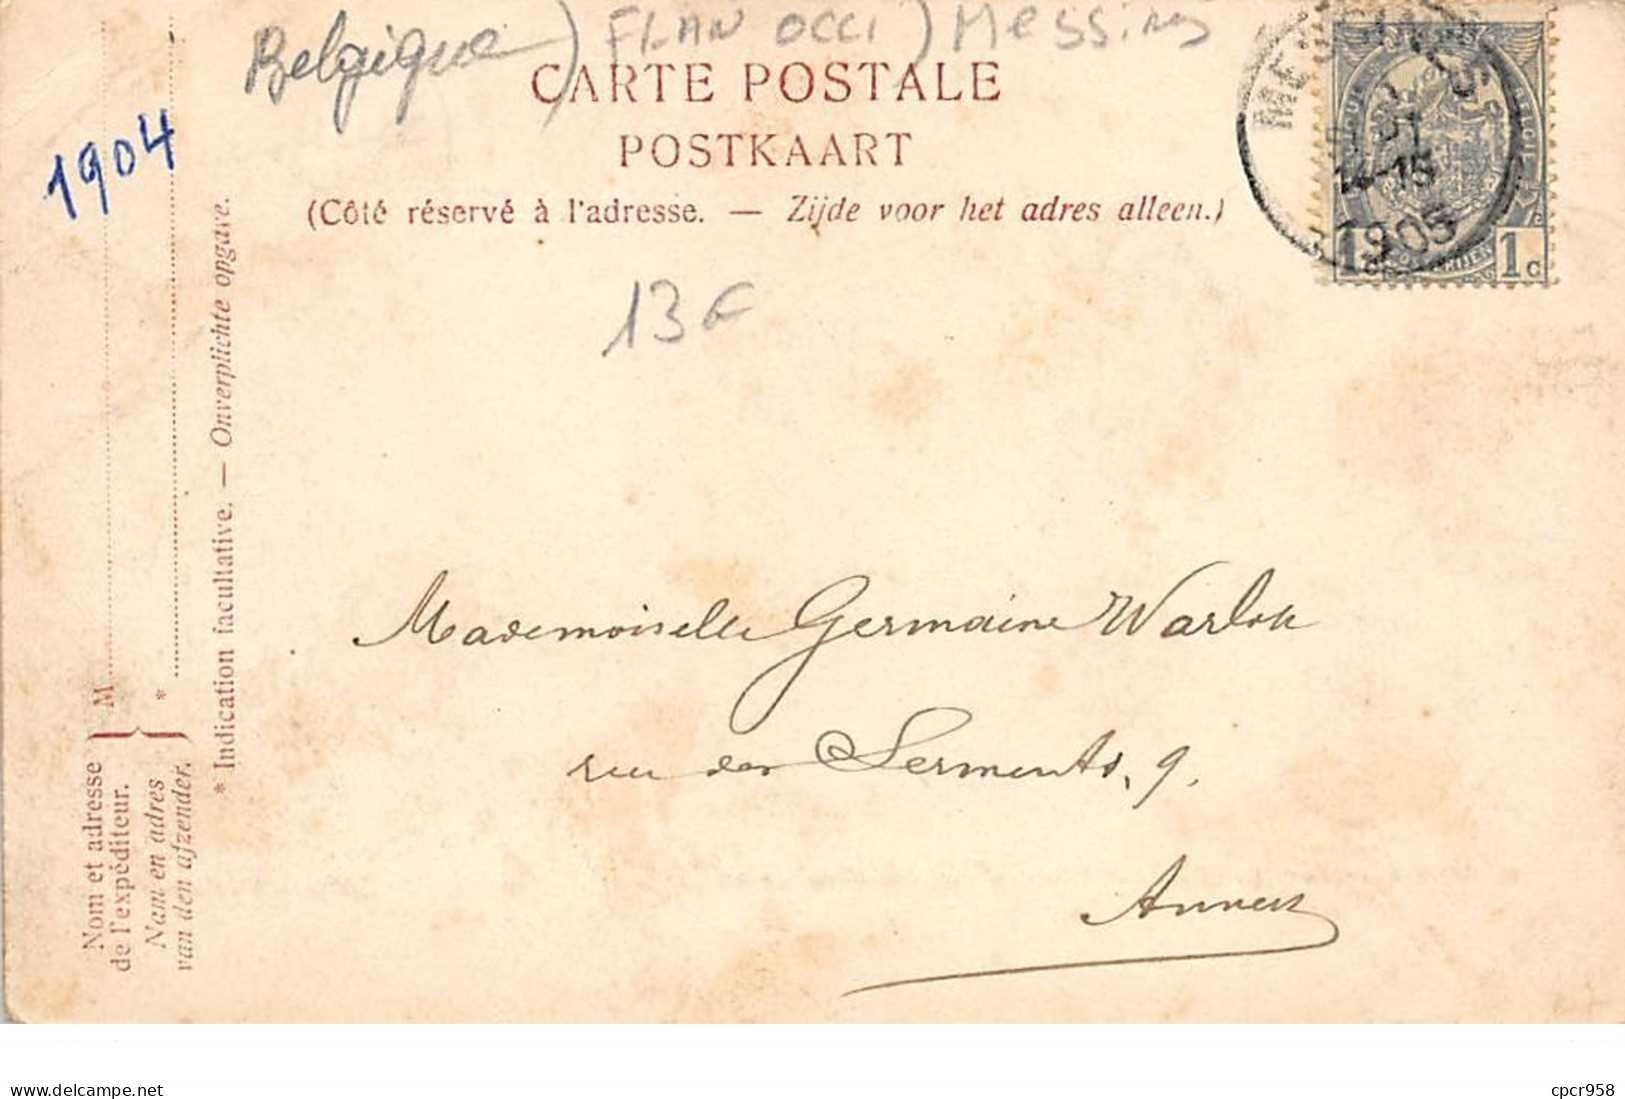 Belgique) FLAN OCCI) Messines
CARTE POSTALE
POSTKAART
(Côté réservé à l'adresse. — Zijde voor het adres alleen.)
1904
13€
MESSINES
14-15
1905
1c 1c
Mademoiselle Germaine
rue des Serments, 9,
Anvers
Nom et adresse
de l'expéditeur.
Nam en adres
van den afzender.
M
*
* Indication facultative. — Onverplichte opgave.
delcampe.net
cpcr958